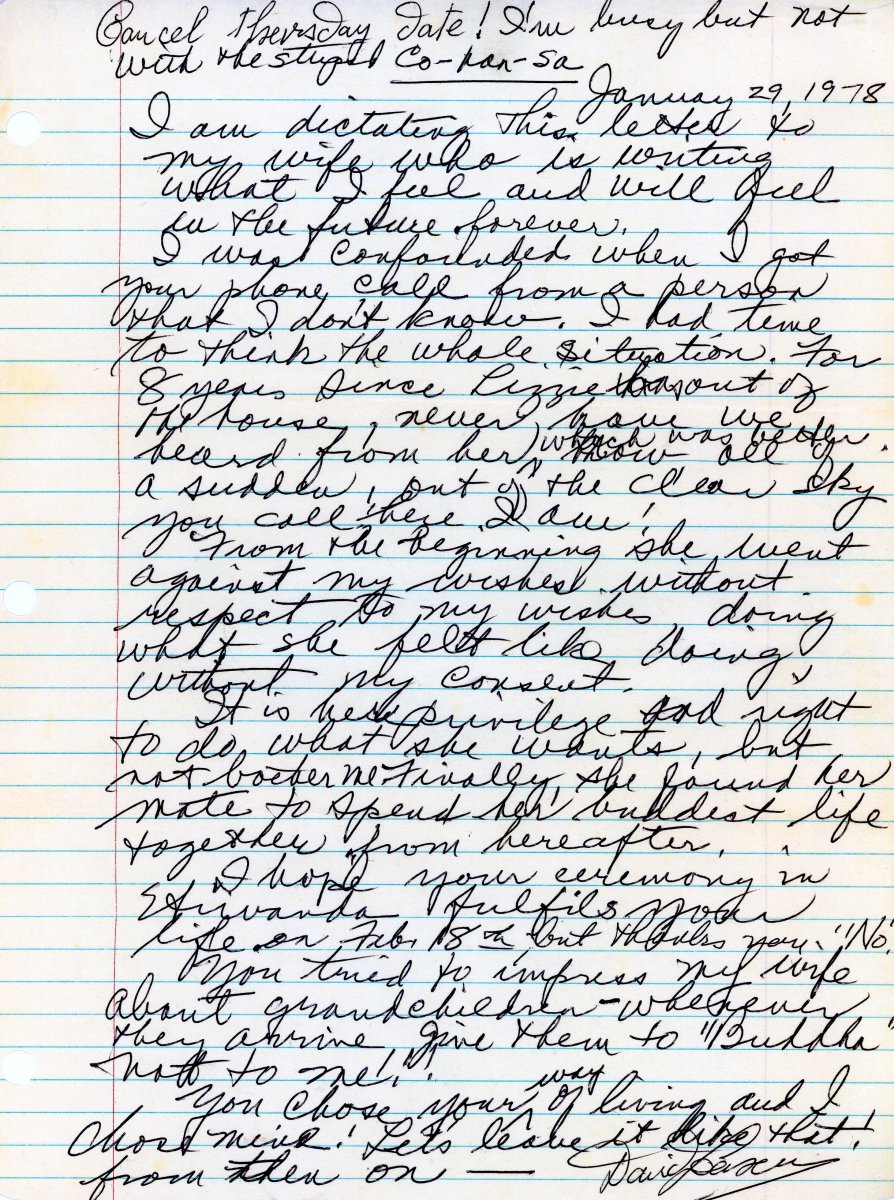 Cancel Thursday date! I'm busy but not
with the stupid Co-han-sa
January 29, 1978
I am dictating this letter to
my wife who is writing
what I feel and will feel
in the future forever.
I was confounded when I got
your phone call from a person
that I don't know. I had time
to think the whole situation. For
8 years since Lizzie was out of
the house, never have we
heard from her, which was better.
Now all of
a sudden, out of the clear sky
you call here I am!
From the beginning she went
against my wishes without
respect to my wishes, doing
what she felt like doing,
without my consent.
It is her privilege and right
to do what she wants, but
not bother me. Finally, she found her
mate to spend her buddest life
together from hereafter.
I hope your ceremony in
Etiwanda fulfils your
life on Feb. 18th, but thanks you. "No."
You tried to impress my wife
about grandchildren - whenever
they arrive, give them to "Buddha"
not to me!"!
You chose your way of living and I
chose mine! Let's leave it like that!
from then on — David